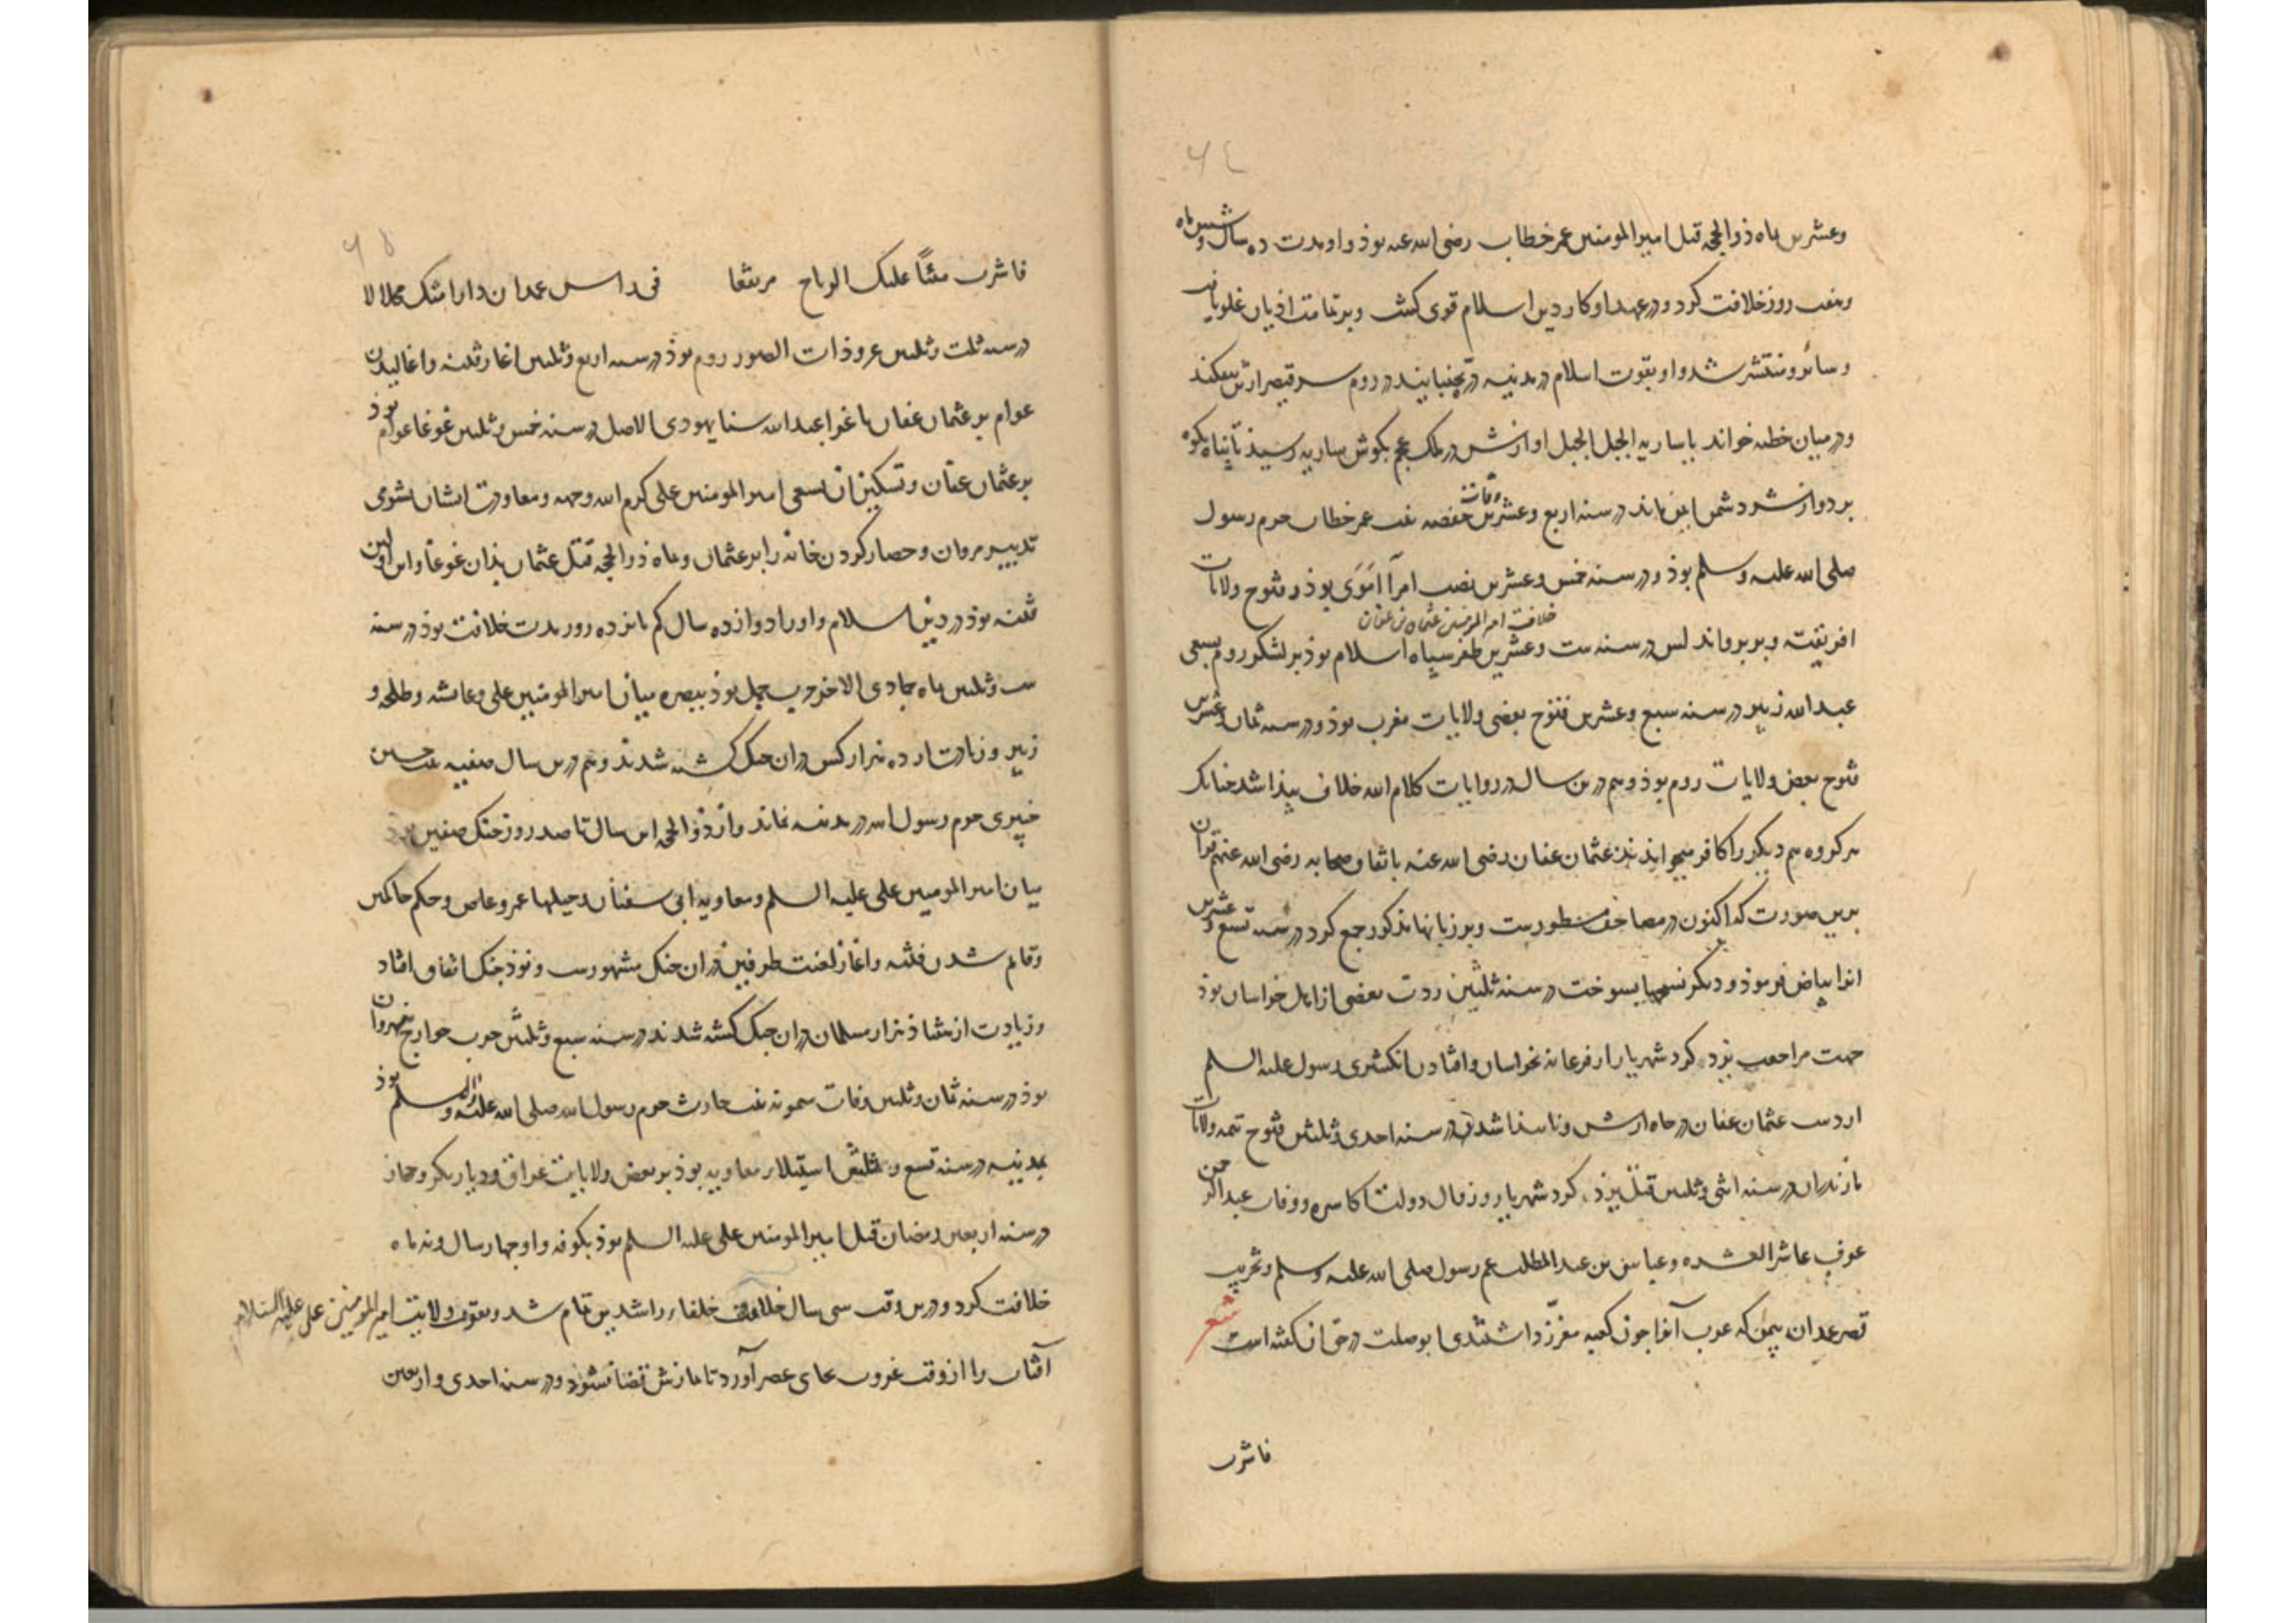 ٦٤
وعشرین ماه ذوالحجه قتل امیرالمومنین عمر خطاب رضی الله عنه بوذ و او مدت ده سال و شش ماه
وهفت روز خلافت کرد و در عهد او کار دین اسلام قوی کشت و بر تمامت ادیان غلو یافت
و سائر و منتشر شد و او بقوت اسلام در مدینه دره بجنبانیذ در روم سر قیصر ازتن بیفکند
و در میان خطبه خواند یا ساریه الجبل الجبل اوازش در ملک عجم بکوش ساریه رسیذ تا پناه بکوه
برد و از شر دشمن ایمن ماند در سنه اربع وعشرین وفات حفصه بنت عمر خطاب حرم رسول
صلی الله علیه وسلم بوذ و در سنه خمس وعشرین نصب امرآ اموی بوذ و فتوح ولایات
خلافت امیر المومنین عثمان بن عفان
افریقیه و بربر واندلس در سنه ست وعشرین ظفر سپاه اسلام بوذ بر لشکر روم بسعی
عبدالله زبیر در سنه سبع وعشرین فتوح بعضی ولایات مغرب بوذ و در سنه ثمان وعشرین
فتوح بعض ولایات روم بوذ و هم درین سال در روایات کلام الله خلاف پیذا شد چنانک
هر کروه هم دیکر را کافر میخواندند عثمان عفان رضی الله عنه باتفاق صحابه رضی الله عنهم قرآن
برین صورت که اکنون در مصاحف مسطورست و بر زبانها مذکور جمع کرد در سنه تسع وعشرین
انرا بیاض فرموذ و دیکر نسخها بسوخت در سنه ثلثین ردت بعضی از اهل خراسان بوذ
جهت مراجعت یزد کرد شهریار از فرغانه بخراسان وافتادن انکشتری رسول علیه السلم
از دست عثمان عفان در چاه اریس و ناپیذا شدن در سنه احدی وثلثین فتوح تتمه ولایات
مازندران در سنه اثنی وثلثین قتل یزد کرد شهریار و زوال دولت اکاسره و وفات عبدالرحمن
عوف عاشر العشره و عباس بن عبدالمطلب عم رسول صلی الله علیه وسلم و تخریب
قصر غمدان بیمن که عرب آنرا چون کعبه معزز داشتندی ابوصلت در حق ان کفته است شعر
فاشرب
٦٥
فاشرب هنئًا علیک التاج مرتفقا فی راس غمدان دارا منک محلالا
در سنه ثلث وثلثین غزو ذات الصور روم بوذ در سنه اربع وثلثین اغاز فتنه و اغالیدن
عوام بر عثمان عفان باغوا عبدالله سبا یهودی الاصل در سنه خمس وثلثین غوغا عوام بوذ
بر عثمان عفان و تسکین ان بسعی امیر المومنین علی کرم الله وجهه ومعاودت ایشان بشومی
تدبیر مروان و حصار کردن خانه را بر عثمان و ماه ذوالحجه قتل عثمان بذان غوغا و این اولین
فتنه بوذ در دین اسلام و او را دوازده سال کم پانزده روز مدت خلافت بوذ در سنه
ست وثلثین ماه جمادی الاخر حرب جمل بوذ ببصره میان امیر المومنین علی و عایشه و طلحه و
زبیر و زیادت از ده هزار کس در ان جنک کشته شدند و هم درین سال صفیه بنت حسین
خیبری حرم رسول الله در مدینه نماند و از ذوالحجه این سال تا صد روز جنک صفین بوذ
میان امیر المومنین علی علیه السلم و معاویه ابی سفیان و حیلها عمرو عاص و حکم حاکمین
و قایم شدن فتنه و اغاز لعنت طرفین در ان جنک مشهورست و نوذ جنک اتفاق افتاد
و زیادت از هشتاذ هزار مسلمان در ان جنک کشته شدند در سنه سبع وثلثین حرب خوارج نهروان
بوذ در سنه ثمان وثلثین وفات میمونه بنت حارث حرم رسول الله صلی الله علیه واله وسلم بوذ
بمدینه در سنه تسع وثلثین استیلاء معاویه بوذ بر بعض ولایات عراق و دیار بکر و حجاز
در سنه اربعین رمضان قتل امیر المومنین علی علیه السلم بوذ بکوفه و او چهار سال و نه ماه
خلافت کرد و درین وقت سی سال خلافت خلفاء راشدین تمام شد و بقوت ولایت امیر المومنین علی علیه السلام
آفتاب را از وقت غروب بجای عصر آورد تا نمازش قضا نشود و در سنه احدی و اربعین